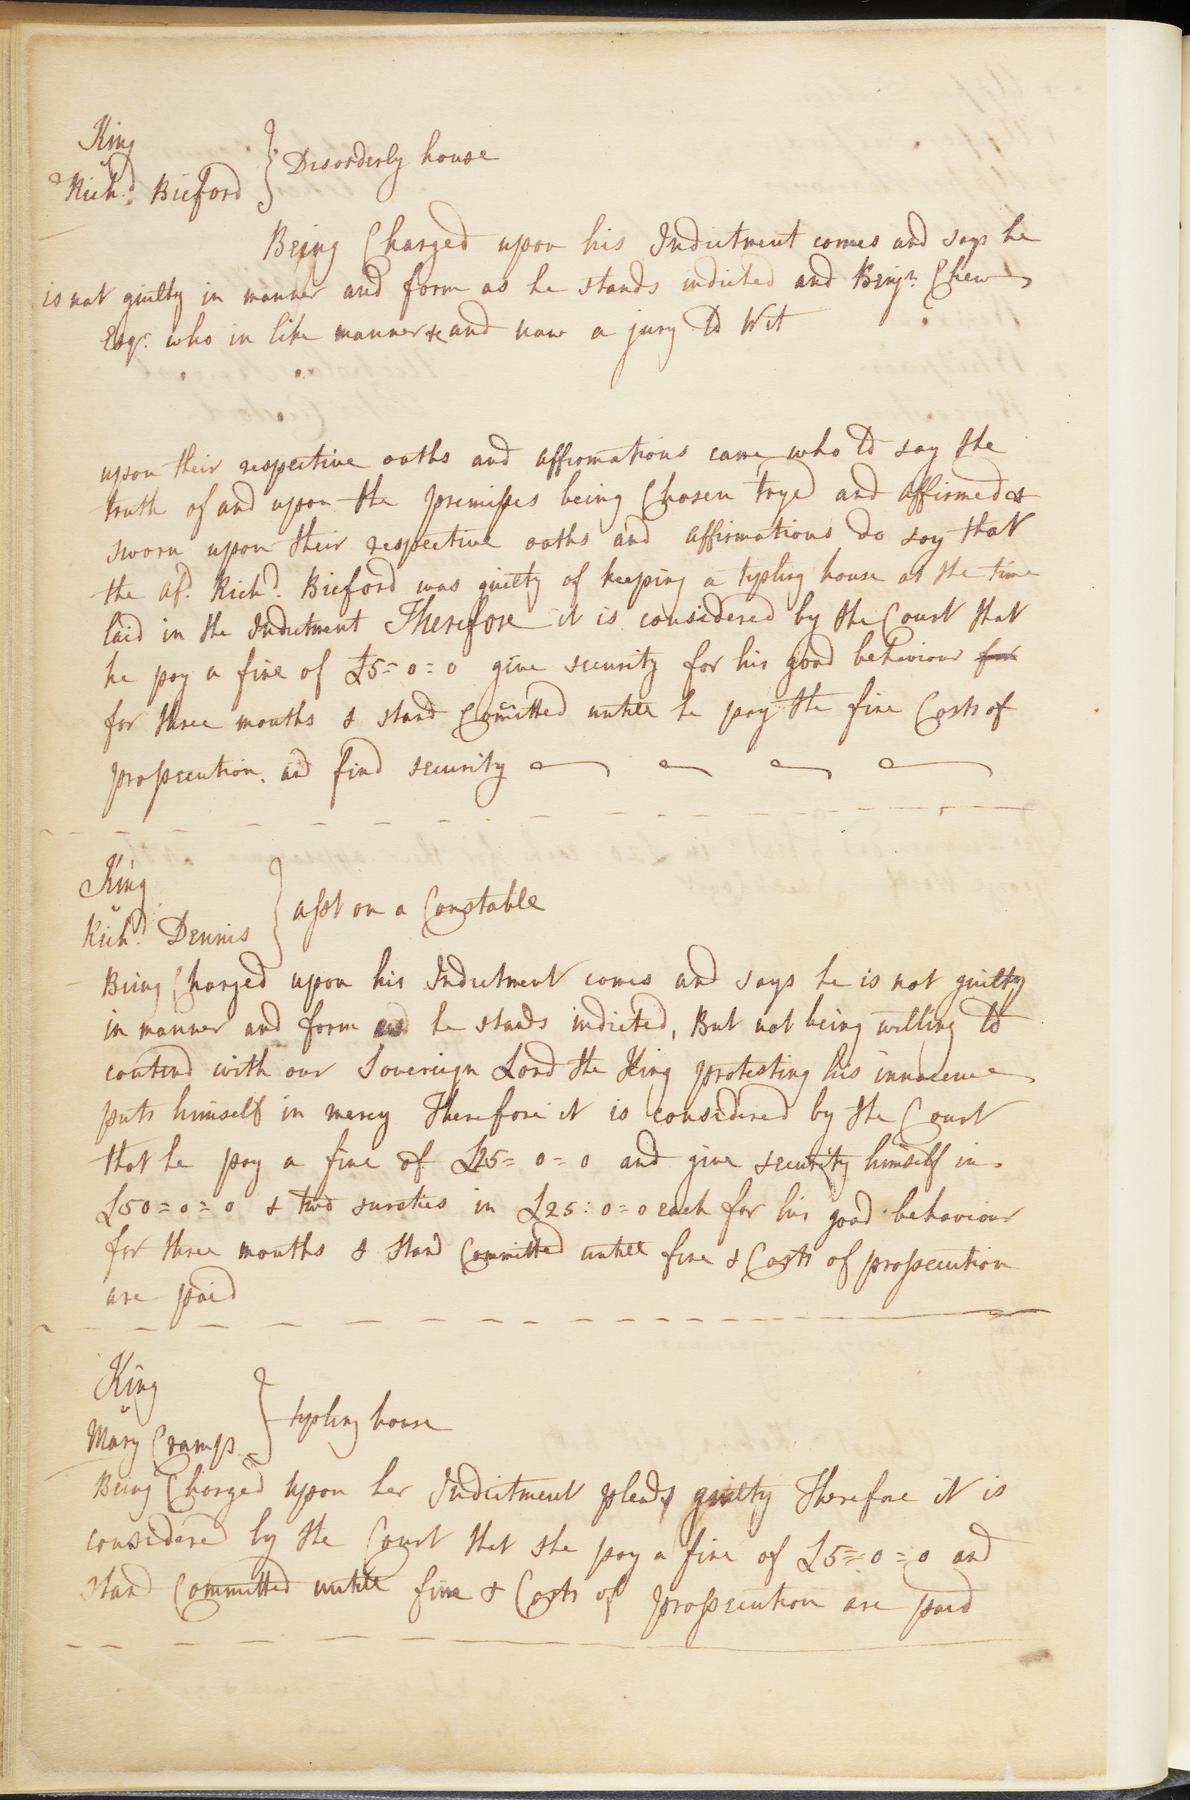 King
v
Richd. Bicford } Disorderly house
Being Charged upon his Indictment comes and says he
is not guilty in manner and form as he stands indicted and Benjn. Chew
Esqr. who in like manner &c and now a jury to Wit
upon their respective oaths and affirmations came who to say the
truth of and upon the premisses being Chosen tryed and affirmed &
sworn upon their respective oaths and affirmations do say that
the afd. Richd. Bicford was guilty of keeping a tipling house at the time
laid in the Indictment Therefore it is considered by the Court that
he pay a fine of £5=0=0 give security for his good behaviour for
for three months & stand Comitted untill he pay the fine Costs of
prossecution. and find security
King
v
Richd. Dennis } asst on a Constable
Being Charged upon his Indictment comes and says he is not guilty
in manner and form as he stands indicted, But not being willing to
contend with our Sovereign Lord the King protesting his innocence
puts himself in mercy Therefore it is considered by the Court
that he pay a fine of £25=0=0 and give security himself in
£50=0=0 & two sureties in £25:0=0 each for his good behaviour
for three months & stand Committed untill fine & Costs of prossecution
are paid
King
v
Mary Cramp } tipling house
Being Charged upon her Indictment pleads guilty Therefore it is
considered by the Court that she pay a fine of £5=0=0 and
stand Committed untill fine & Costs of prossecution are paid